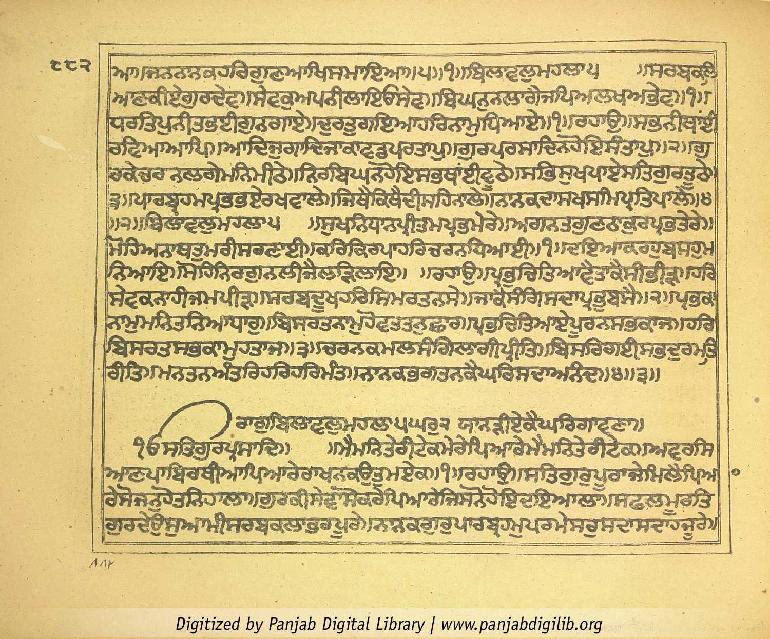 ੮੮੨
ਆ॥ਜਨਨਾਨਕਹਰਿਗੁਣਆਖਿਸਮਾਇਆ॥੫॥੧॥ਬਿਲਾਵਲੁਮਹਲਾ੫ ॥ਸਰਬਕਲਿ
ਆਣਕੀਏਗੁਰਦੇਵ॥ਸੇਵਕੁਅਪਨੀਲਾਇਓਸੇਵ॥ਬਿਘਨੁਨਲਾਗੈਜਪਿਅਲਖਅਭੇਵ॥੧॥
ਧਰਤਿਪੁਨੀਤਭਈਗੁਨਗਾਏ॥ਦੁਰਤੁਗਇਆਹਰਿਨਾਮੁਧਿਆਏ॥੧॥ਰਹਾਉ॥ਸਭਨੀਥਾਂਈ
ਰਵਿਆਆਪਿ॥ਆਦਿਜੁਗਾਦਿਜਾਕਾਵਡਪਰਤਾਪੁ॥ਗੁਰਪਰਸਾਦਿਨਹੋਇਸੰਤਾਪੁ॥੨॥ਗੁ
ਰਕੇਚਰਨਲਗੇਮਨਿਮੀਠੇ॥ਨਿਰਬਿਘਨਹੋਇਸਭਥਾਂਈਵੂਠੇ॥ਸਭਿਸੁਖਪਾਏਸਤਿਗੁਰਤੂਠੇ॥
੩॥ਪਾਰਬ੍ਰਹਮਪ੍ਰਭਭਏਰਖਵਾਲੇ॥ਜਿਥੈਕਿਥੈਦੀਸਹਿਨਾਲੇ॥ਨਾਨਕਦਾਸਖਸਮਿਪ੍ਰਤਿਪਾਲੇ॥੪
॥੨॥ਬਿਲਾਵਲੁਮਹਲਾ੫ ॥ਸੁਖਨਿਧਾਨਪ੍ਰੀਤਮਪ੍ਰਭਮੇਰੇ॥ਅਗਨਤਗੁਣਠਾਕੁਰਪ੍ਰਭਤੇਰੇ॥
ਮੋਹਿਅਨਾਥਤੁਮਰੀਸਰਣਾਈ॥ਕਰਿਕਿਰਪਾਹਰਿਚਰਨਧਿਆਈ॥੧॥ਦਇਆਕਰਹੁਬਸਹੁਮ
ਨਿਆਇ॥ਮੋਹਿਨਿਰਗੁਨਲੀਜੈਲੜਿਲਾਇ॥ ॥ਰਹਾਉ॥ਪ੍ਰਭੁਚਿਤਿਆਵੈਤਾਕੈਸੀਭੀੜ॥ਹਰਿ
ਸੇਵਕਨਾਹੀਜਮਪੀੜ॥ਸਰਬਦੂਖਹਰਿਸਿਮਰਤਨਸੇ॥ਜਾਕੈਸੰਗਿਸਦਾਪ੍ਰਭੁਬਸੈ॥੨॥ਪ੍ਰਭਕਾ
ਨਾਮੁਮਨਿਤਨਿਆਧਾਰੁ॥ਬਿਸਰਤਨਾਮੁਹੋਵਤਤਨੁਛਾਰੁ॥ਪ੍ਰਭਚਿਤਿਆਏਪੂਰਨਸਭਕਾਜ॥ਹਰਿ
ਬਿਸਰਤਸਭਕਾਮੁਹਤਾਜ॥੩॥ਚਰਨਕਮਲਸੰਗਿਲਾਗੀਪ੍ਰੀਤਿ॥ਬਿਸਰਿਗਈਸਭਦੁਰਮਤਿ
ਰੀਤਿ॥ਮਨਤਨਅੰਤਰਿਹਰਿਹਰਿਮੰਤ॥ਨਾਨਕਭਗਤਨਕੈਘਰਿਸਦਾਅਨੰਦ॥੪॥੩॥
ਰਾਗੁਬਿਲਾਵਲੁਮਹਲਾ੫ਘਰੁ੨ ਯਾਨੜੀਏਕੈਘਰਿਗਾਵਣਾ॥
ੴਸਤਿਗੁਰਪ੍ਰਸਾਦਿ॥ ॥ਮੈਮਨਿਤੇਰੀਟੇਕਮੇਰੇਪਿਆਰੇਮੈਮਨਿਤੇਰੀਟੇਕ॥ਅਵਰਸਿ
ਆਣਪਾਬਿਰਥੀਆਪਿਆਰੇਰਾਖਨਕਉਤੁਮਏਕ॥੧॥ਰਹਾਉ॥ਸਤਿਗੁਰੁਪੂਰਾਜੇਮਿਲੈਪਿਆ
ਰੇਸੋਜਨੁਹੋਤਨਿਹਾਲਾ॥ਗੁਰਕੀਸੇਵਾਸੋਕਰੇਪਿਆਰੇਜਿਸਨੋਹੋਇਦਇਆਲਾ॥ਸਫਲਮੂਰਤਿ
ਗੁਰਦੇਉਸੁਆਮੀਸਰਬਕਲਾਭਰਪੂਰੇ॥ਨਾਨਕਗੁਰੁਪਾਰਬ੍ਰਹਮੁਪਰਮੇਸਰੁਸਦਾਸਦਾਹਜੂਰੇ॥
Digitized by Panjab Digital Library | www.panjabdigilib.org